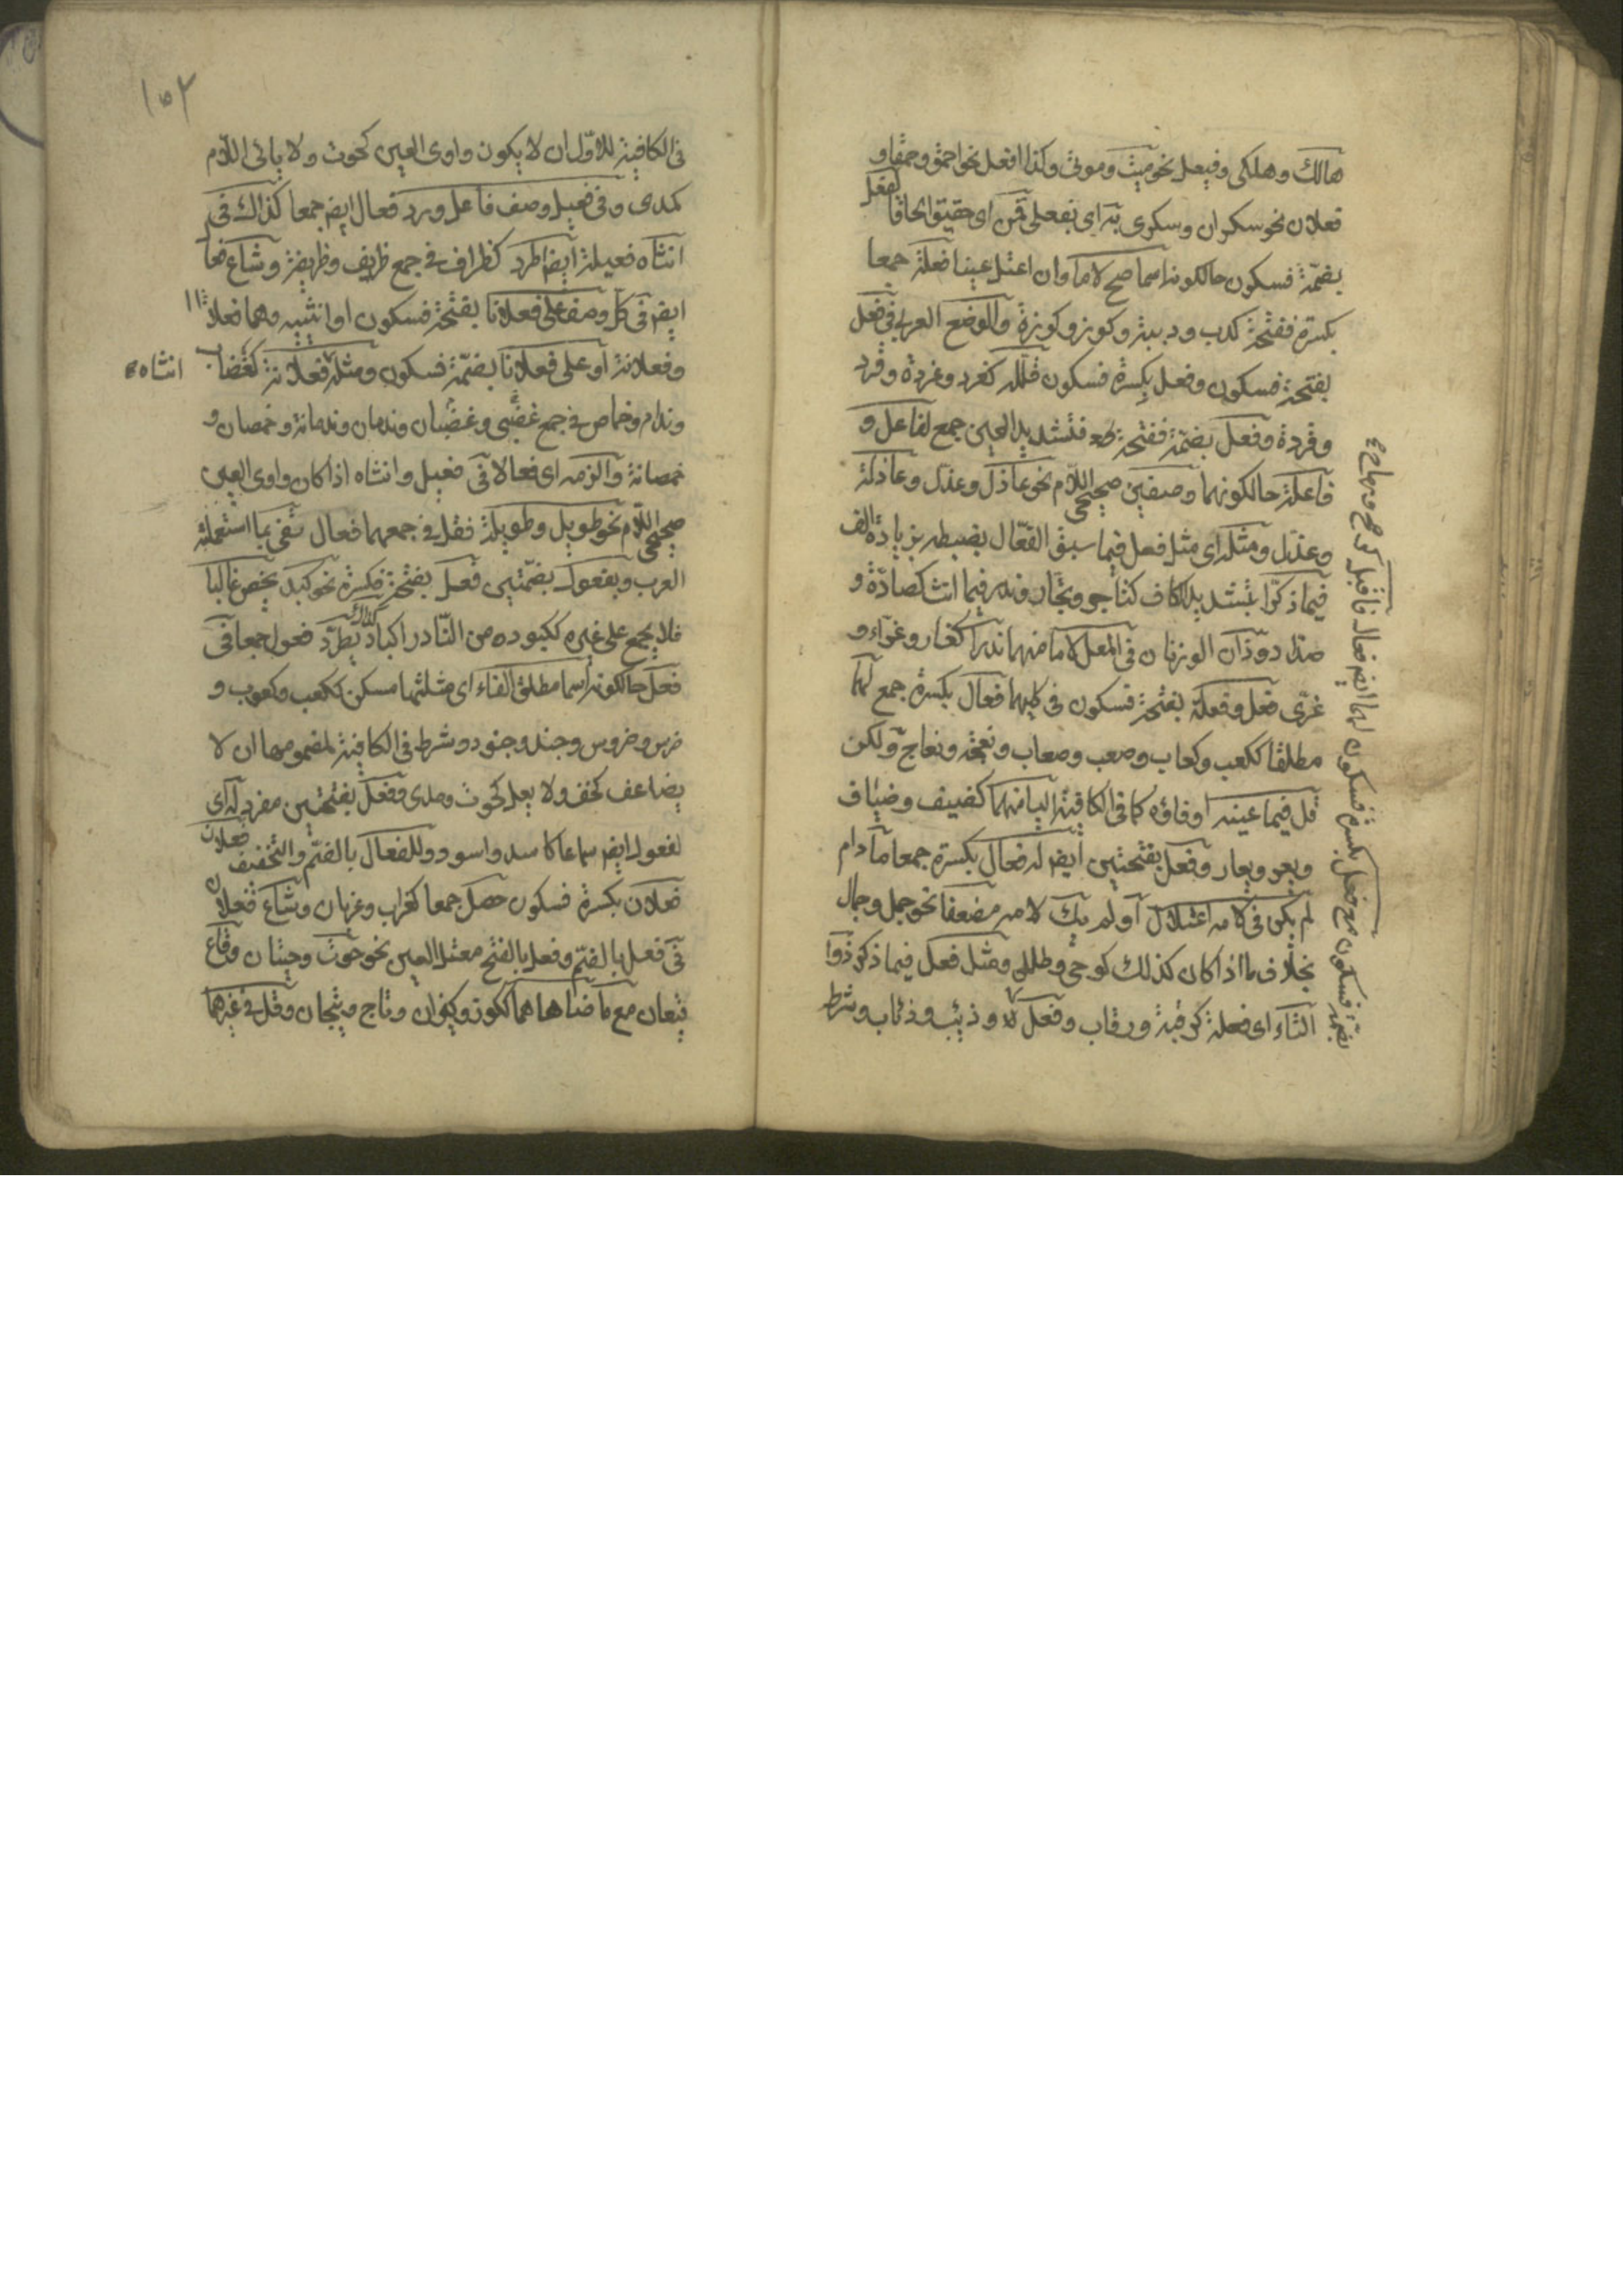 هالك وهلكى وفيعل نحو ميت وموتى وكذا افعل نحو احمق وحمقى و
فعلان نحو سكران وسكرى به اى بفعلى قمن اى حقيق الحاقا لفعل
بضمّة فسكون حالكونه اسما صح لاما وان اعتل عينا فعلة جمعا
بكسرة ففتحة كدب ودببة وكوز وكوزة والوضع العربى فى فعل
بفتحة فسكون وفعل بكسرة فسكون قلله كغرد وغردة وقرد
وقردة وفعل بضمّة ففتحة فتشديد العين جمع لفاعل و
فاعلة حالكونهما وصفين صحيحى اللّام نحو عاذل وعذل وعاذلة
وعذل ومثله اى مثل فعل فيما سبق الفعّال بضبطه بزيادة الف
فيما ذكّرا بتشديد الكاف كتاجر وتجّار وندر فيما انث كصادّة و
صدّاد وذان الوزنان فى المعل لاما منهما ندرا كغاز وغزّاء و
غزّى فعل وفعلة بفتحة فسكون فى كليهما فعال بكسرة جمع لهما
مطلقا ككعب وكعاب وصعب وصعاب ونعجة ونعاج ولكن
قل فيما عينه او فاؤه كما فى الكافية اليا منهما كضيف وضياف
ويعر ويعار وفعل بفتحتين ايضم له فعال بكسرة جمعا ما دام
لم يكن فى لامه اعتلال او لم يك لامه مضعفا نحو جمل وجمال
بخلاف ما اذا كان كذلك كوحى وطلل ومثل فعل فيما ذكر ذوا
التاء اى فعلة كرقبة ورقاب وفعل وذئب وذئاب وشرط
بكسرة فسكون مع فعل بضمّة فسكون لهما ايضم فعال فاقبل كرمح ورماح
١٥٢
فى الكافية للاوّل ان لا يكون واوى العين كحوت ولا يائى اللّام
كمدى وفى فعيل وصف فاعل ورد فعال ايضم جمعا كذاك فى
انثاه فعيلة ايضم اطرد كظراف فى جمع ظريف وظريفة وشاع فعا
ايضم فى كل وصف على فعلانا بفتحة فسكون او انثييه وهما فعلا
وفعلانة او على فعلانا بضمّة فسكون ومثله فعلانة كغضاب انثاه
وندام وخماص فى جمع غضبى وغضبان وندمان وندمانة وخمصان و
خمصانة والزمه اى فعالا فى فعيل وانثاه اذا كان واوى العين
صحيحى اللّام نحو طويل وطويلة فقل فى جمعهما فعال تفى بما استعملته
العرب وبفعول بضمّتين فعل بفتحة فكسرة نحو كبد يخص غالبا
فلا يجمع على غيره ككبود ومن النّادر اكباد كذاك يطّرد فعول جمعا فى
فعل حالكونه اسما مطلق الفاء اى مثلثها مسكن ككعب وكعوب و
ضرس وضروس وجند وجنود وشرط فى الكافية لمضمومها ان لا
يضاعف كخف ولا يعل كحوت ومدى وفعل بفتحتين مفرد له اى
لفعول ايضم سماعا كاسد واسود وللفعال بالضّم والتّخفيف
فعلان بكسرة فسكون حصل جمعا كغراب وغربان وشاع فعلان
فى فعل بالضّم وفعل بالفتح معتل العين نحو حوت وحيتان وقاع
قيعان مع ما ضاهاهما ككوز وكيزان وتاج وتيجان وقل فى غيرهما